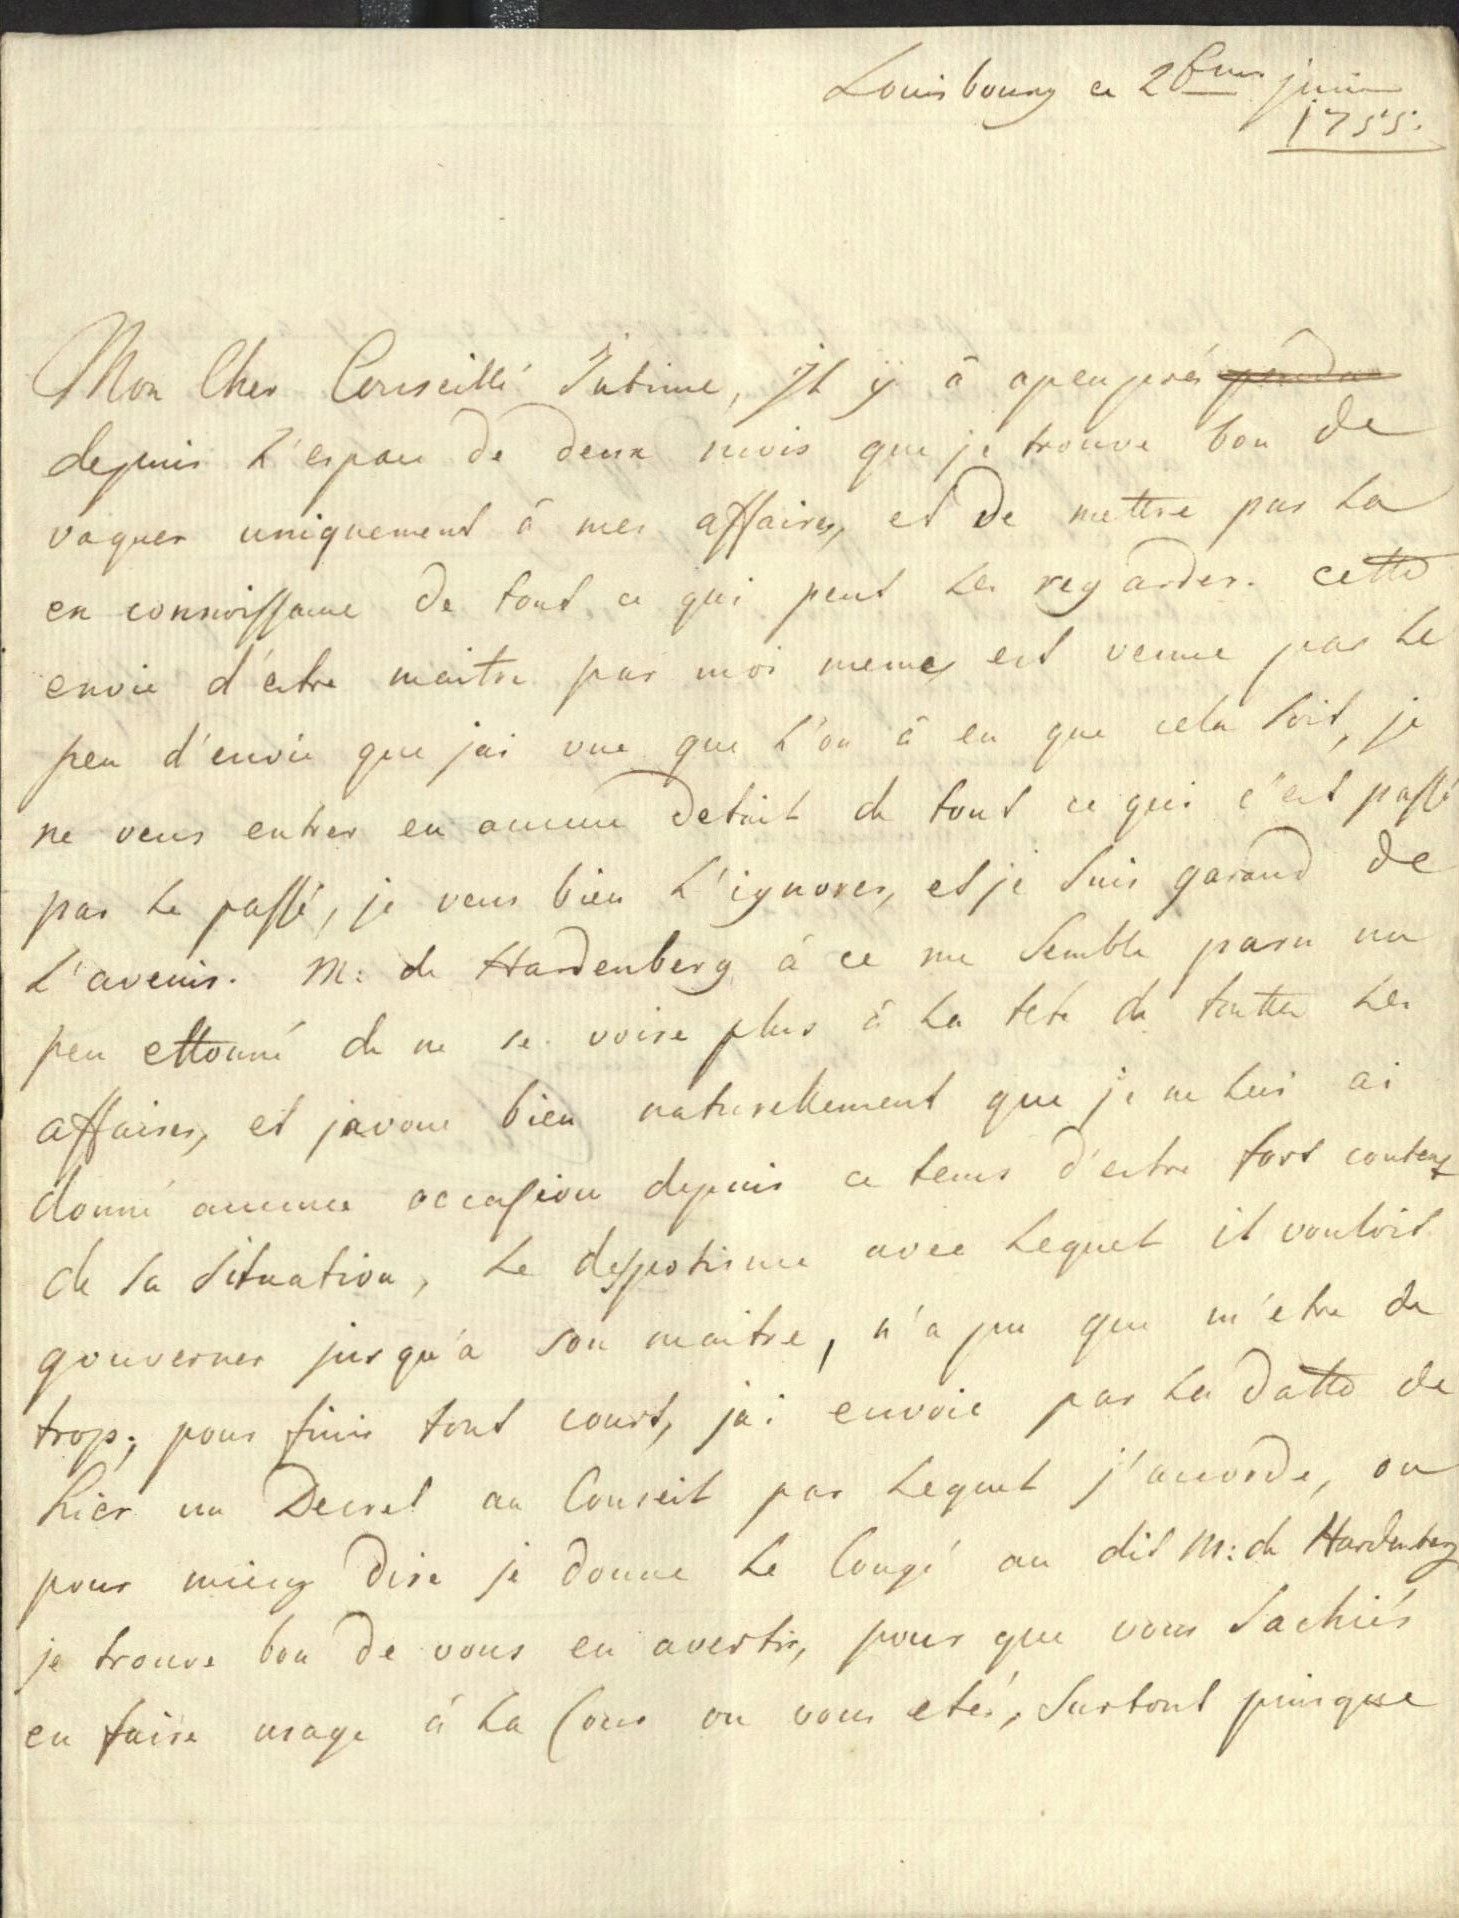 Louisbourg ce 2 juin
1755.
Mon Cher Conseillé Intime, Il ÿ â apeuprés
depuis L'espace de deux mois que je trouve bon de
vaquer uniquement â mes affaires, et de mettre par La
en connoissance de tout ce qui peut Les regarder. cette
envie d'estre maitre par moi meme, est venue par Le
peu d'envie que jai vue que L'on â eu que cela soit, je
ne veus entrer en aucune detail de tout ce qui c'est passé
par Le passé, je veus bien L'ignorer, et je suis garand de
L'avenir. M: de Hardenberg â ce me semble paru un
peu ettonné de ne se voire plus â La tete de toutte Les
affaires, et javoue bien naturellement que je ne Lui ai
donné aucune occasion depuis ce tems d'estre fort content
de sa situation, Le despotisme avec Lequel il vouloit
gouverner jusqu'a son maitre, n'a pu que m'etre de
trop; pour finir tout court, jai envoie par La datte de
hier un Decret au Conseil par Lequel j'accorde, ou
pour mieux dire je donne Le Congé au dit M: de Hardenberg
je trouve bon de vous en avertir, pour que vous sachiés
en faire usage á La Cour ou vous etés, surtout puisque